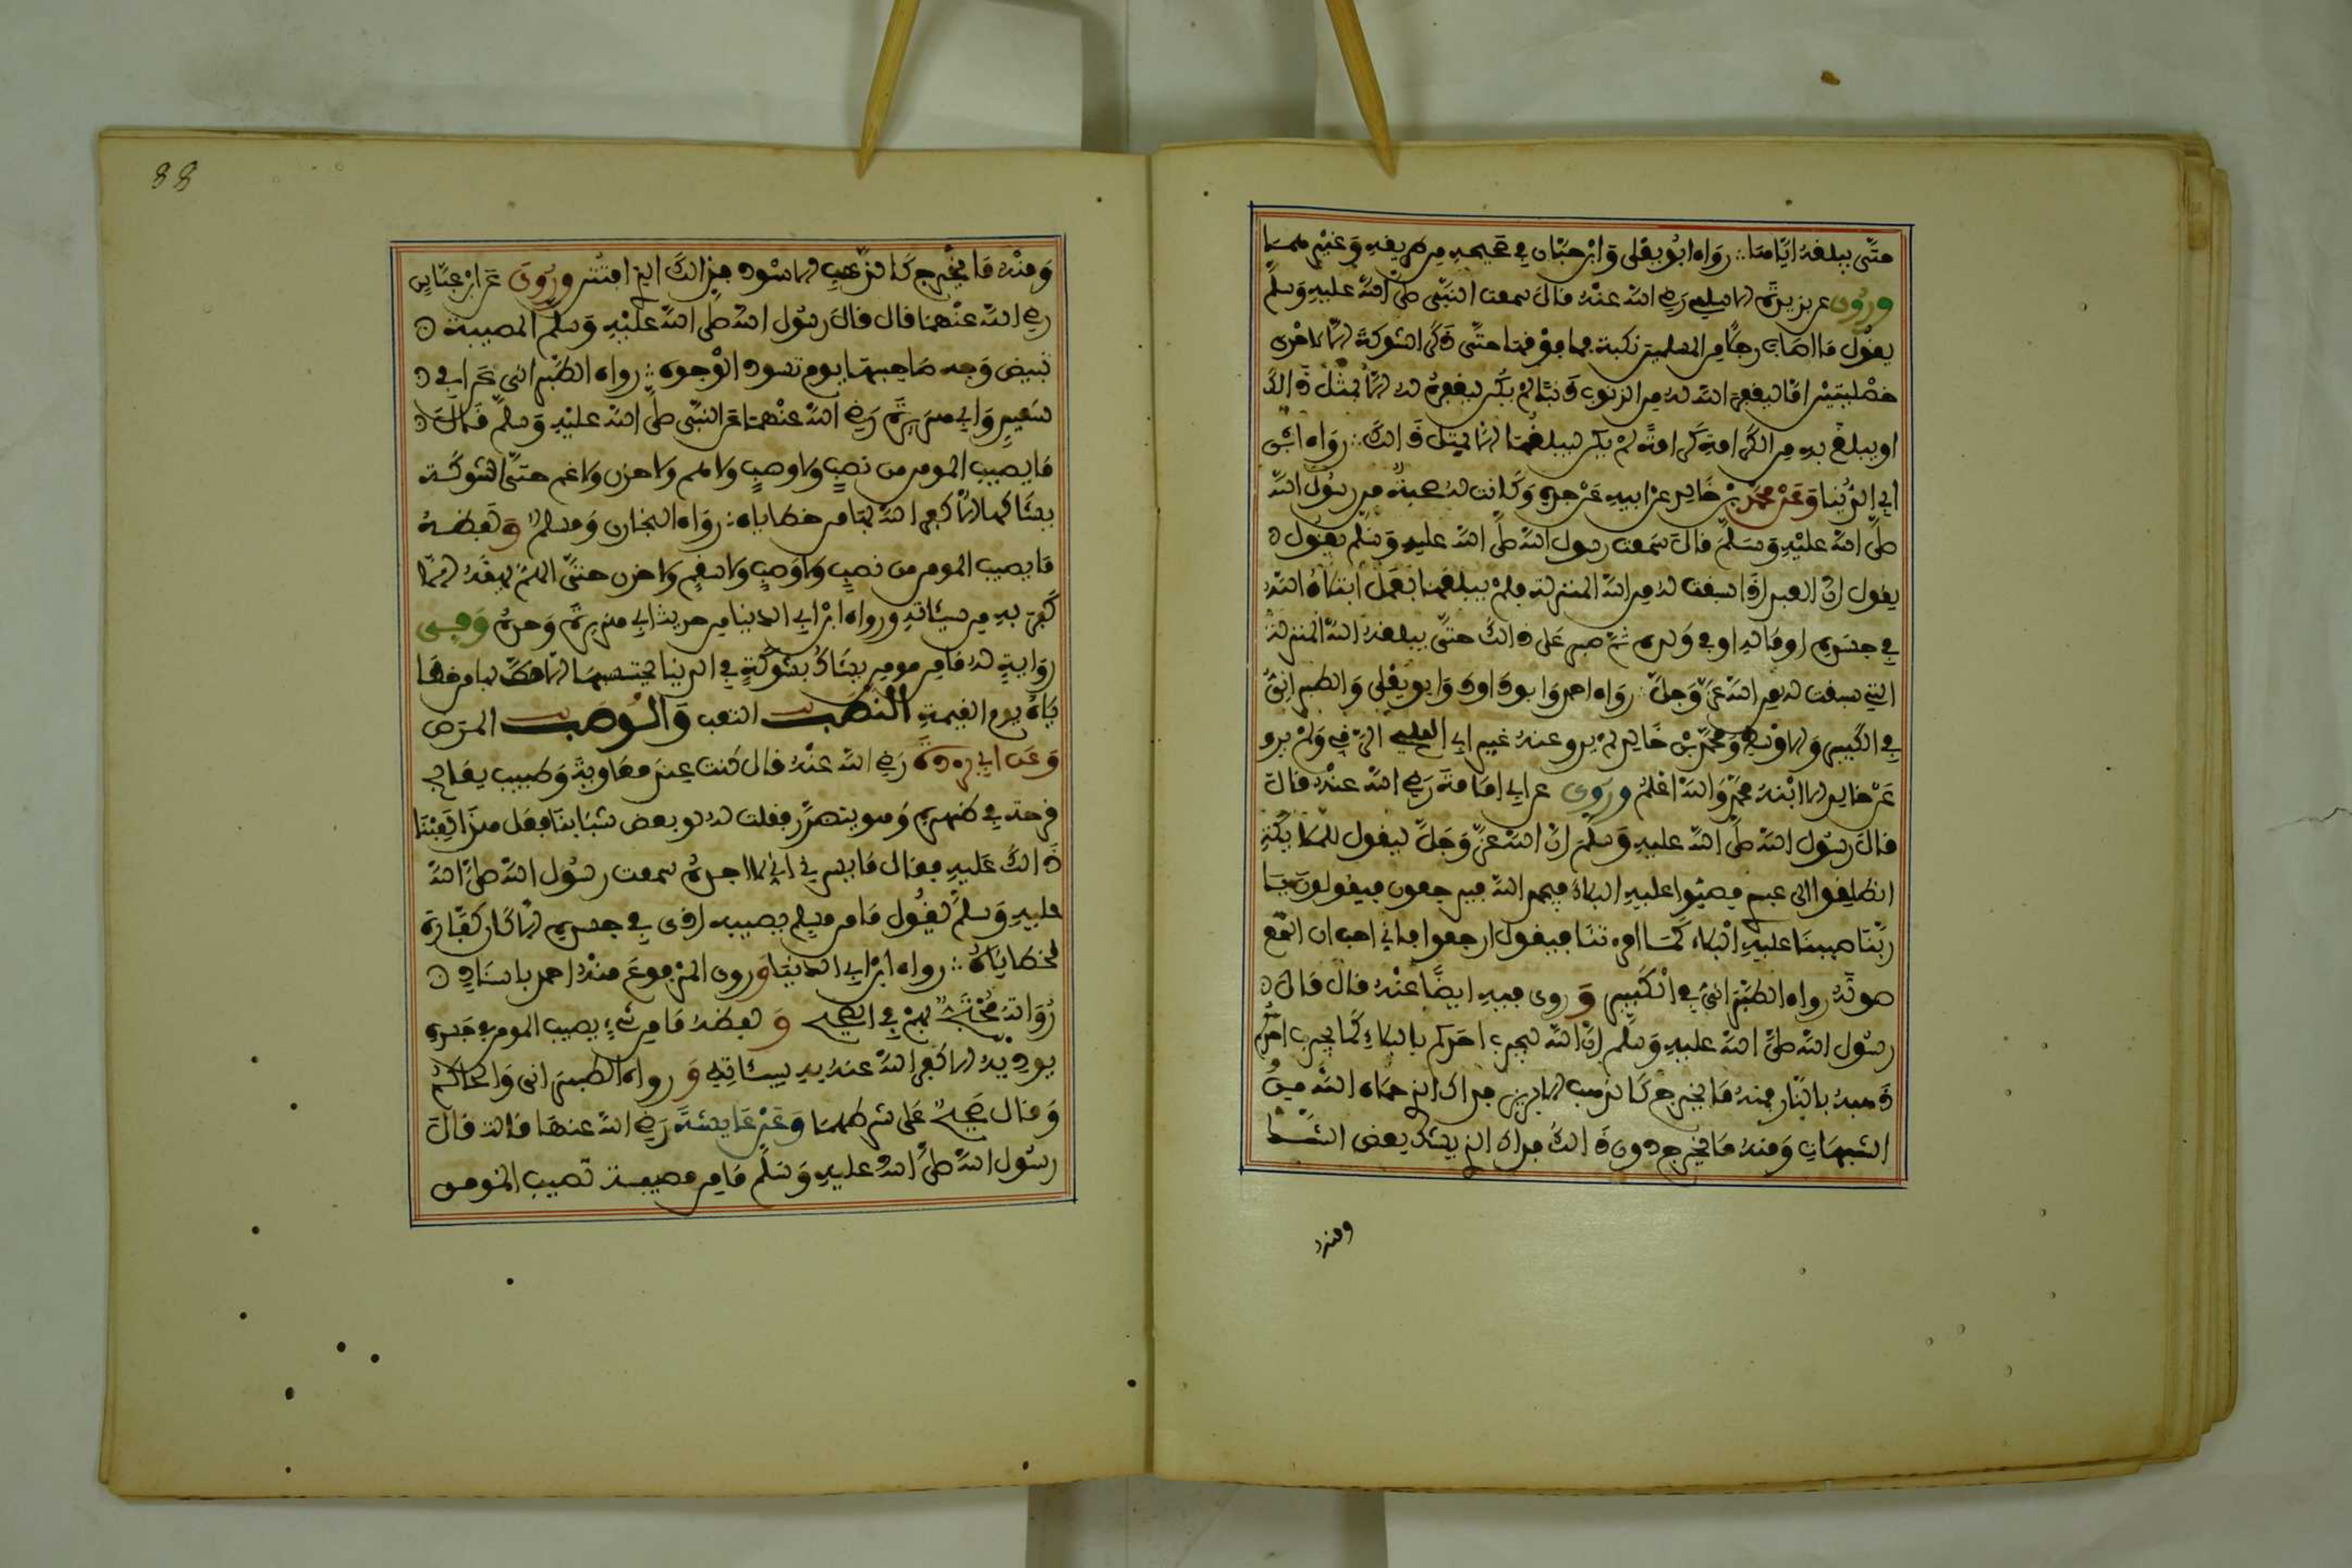 حتى يبلغه اياها رواه ابو يعلى وابن حبان في صحيحه من طريقه وغيرهما
وروي عن بريدة الاسلمي رضي الله عنه قال سمعت النبي صلى الله عليه وسلم
يقول ما اصاب رجلا من المسلمين نكبة فما فوقها حتى ذكر الشوكة الا لاحدى
خصلتين اما ليغفر الله له من الذنوب ذنبا لم يكن ليغفره له الا بمثل ذالك
او يبلغ به من الكرامة كرامة لم يكن ليبلغها الا بمثل ذالك رواه ابن
ابي الدنيا وعن محمد بن خالد عن ابيه عن جده وكانت له صحبة من رسول الله
صلى الله عليه وسلم قال سمعت رسول الله صلى الله عليه وسلم يقول
يقول ان العبد اذا سبقت له من الله المنزلة فلم يبلغها بعمل ابتلاه الله
في جسده او ماله او في ولده ثم صبر على ذالك حتى يبلغه الله المنزلة
التي سبقت له من الله عز وجل رواه احمد وابو داود وابو يعلى والطبراني
في الكبير والاوسط ومحمد بن خالد لم يرو عنه غير ابي المليح الرقي ولم يرو
عن خالد الا ابنه محمد والله اعلم وروي عن ابي امامة رضي الله عنه قال
قال رسول الله صلى الله عليه وسلم ان الله عز وجل ليقول للملائكة
انطلقوا الى عبدي فصبوا عليه البلاء فيحمد الله فيرجعون فيقولون يا
ربنا صببنا عليه البلاء كما امرتنا فيقول ارجعوا فاني احب ان اسمع
صوته رواه الطبراني في الكبير وروي فيه ايضا عنه قال قال
رسول الله صلى الله عليه وسلم ان الله ليجرب احدكم بالبلاء كما يجرب احدكم
ذهبه بالنار فمنه ما يخرج كالذهب الابريز فذاك الذي حماه الله من
الشبهات ومنه ما يخرج دون ذالك فذاك الذي يشك بعض الشك
ومنه
88
ومنه ما يخرج كالذهب الاسود فذالك الذي افتتن وروي عن ابن عباس
رضي الله عنهما قال قال رسول الله صلى الله عليه وسلم المصيبة
تبيض وجه صاحبها يوم تسود الوجوه رواه الطبراني عن ابي
سعيد وابي هريرة رضي الله عنهما عن النبي صلى الله عليه وسلم قال
ما يصيب المومن من نصب ولا وصب ولا هم ولا حزن ولا غم حتى الشوكة
يشاكها الا كفر الله بها من خطاياه رواه البخاري ومسلم ولفظه
ما يصيب المومن من نصب ولا وصب ولا سقم ولا حزن حتى الهم يهمه الا
كفر به من سيئاته ورواه ابن ابي الدنيا من حديث ابي هريرة وحده وفي
رواية له ما من مومن يشاك بشوكة في الدنيا يحتسبها الا قص بها من خطا
ياه يوم القيمة النصب التعب والوصب المرض
وعن ابي بردة رضي الله عنه قال كنت عند معاوية وطبيب يعالج
قرحة في ظهره وهو يتضرر فقلت له لو بعض شبابنا فعل هذا لعبنا
ذالك عليه فقال ما يسرني اني لا اجده سمعت رسول الله صلى الله
عليه وسلم يقول ما من مسلم يصيبه اذى في جسده الا كان كفارة
لخطاياه رواه ابن ابي الدنيا وروى المرفوع منه احمد باسناد
رواته محتج بهم في الصحيح ولفظه ما من شيء يصيب المومن في جسده
يوذيه الا كفر الله عنه به سيئاته ورواه الطبراني والحاكم
وقال صحيح على شرطهما وعن عايشة رضي الله عنها قالت قال
رسول الله صلى الله عليه وسلم ما من مصيبة تصيب المومن